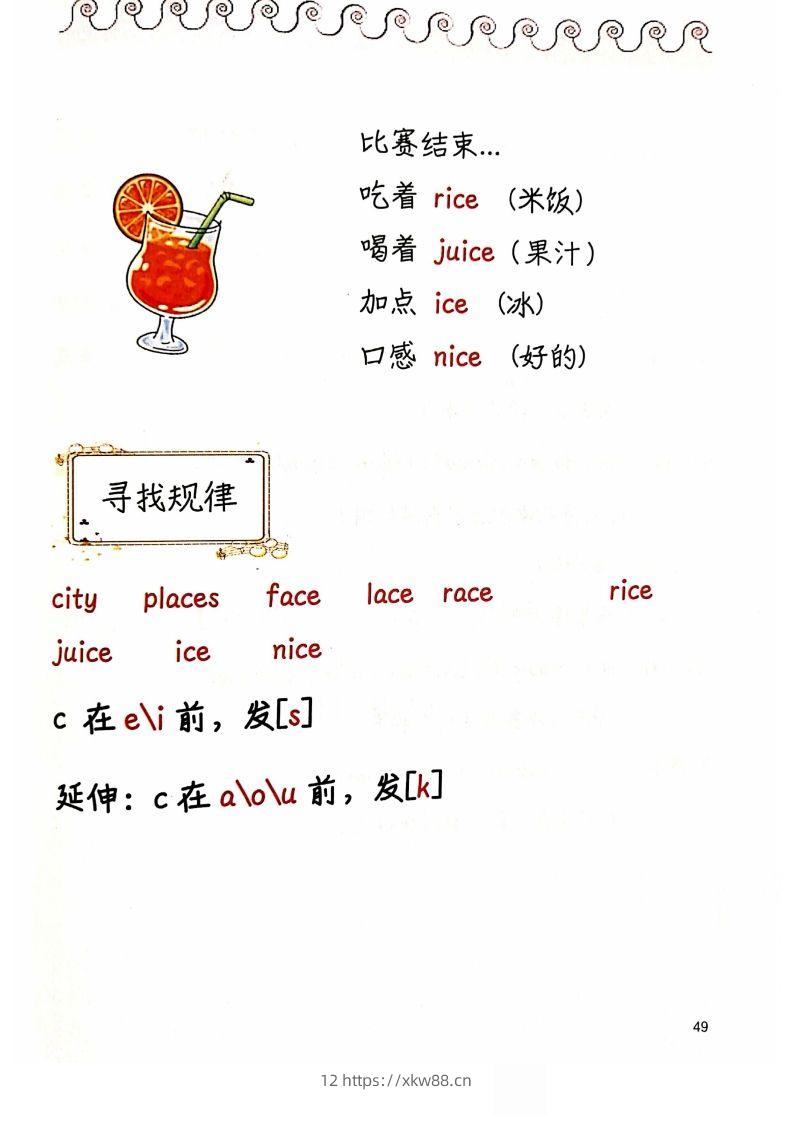 比赛结束...
吃着 rice （米饭）
喝着 juice（果汁）
加点 ice （冰）
口感 nice （好的）
寻找规律
city places face lace race rice
juice ice nice
c 在 e\i 前，发[s]
延伸：c 在 a\o\u 前，发[k]
49
12 https://xkw88.cn